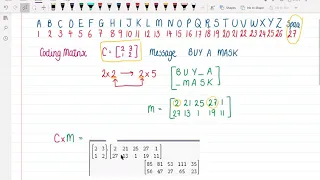 A B C D E F G H I J K L M N O P Q R S T U V W X Y Z Space
1 2 3 4 5 6 7 8 9 10 11 12 13 14 15 16 17 18 19 20 21 22 23 24 25 26 27
Coding Matrix C = [2 3 Message BUY A MASK
1 2]
2×2 → 2×5 [B U Y _ A
_ M A S K]
M = [2 21 25 27 1
27 13 1 19 11]
C×M =
[2 3] [2 21 25 27 1
1 2] 27 13 1 19 11]
[85 81 53 111 35
56 47 27 65 23]